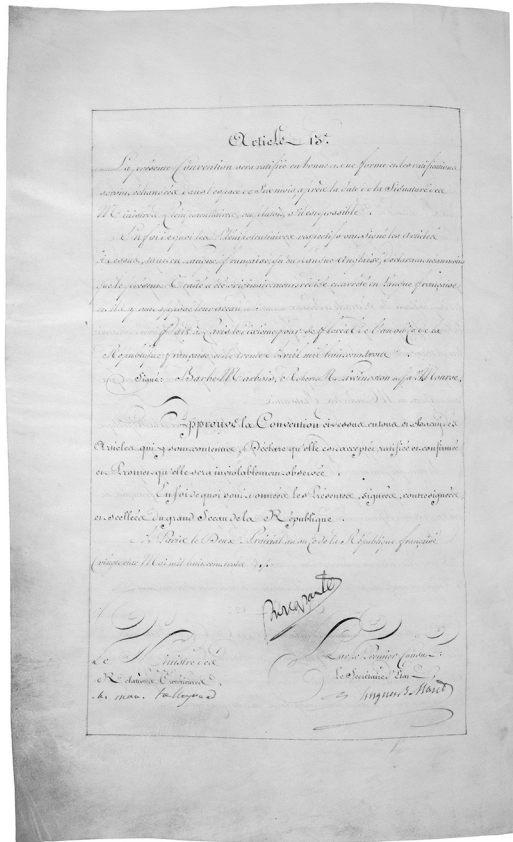 Article 13e.
La présente Convention sera ratifiée en bonne et due forme et les ratifications
seront échangées dans l'espace de Six mois après la date de la Signature des
Ministres Plénipotentiaires, ou plutôt, s'il est possible.
En foi de quoi les Plénipotentiaires respectifs ont signé les Articles
ci dessus, tant en langue française, qu'en langue Anglaise, déclarant néanmoins
que le présent Traité a été originairement rédigé et arrêté en langue française,
et ils y ont apposé leur Sceau.
Fait à Paris le dixième jour de floréal de l'an onze de la
République française et le trente Avril mil huit cent trois.
Signé: Barbé Marbois, Robt R. Livingston et Jas Monroe.
Approuve la Convention ci dessus en tous et chacun des
Articles qui y sont contenus, Déclare qu'elle est acceptée, ratifiée et confirmée
et Promet qu'elle sera inviolablement observée.
En foi de quoi sont données les Présentes, signées, contresignées
et scellées du grand Sceau de la République.
A Paris le Deux Prairial an onze de la République française
vingt deux Mai mil huit cent trois.
Bonaparte
Le Ministre des
Relations Extérieures
ch. mau. talleyrand
Par le Premier Consul:
Le Secrétaire d'Etat
Hugues B. Maret